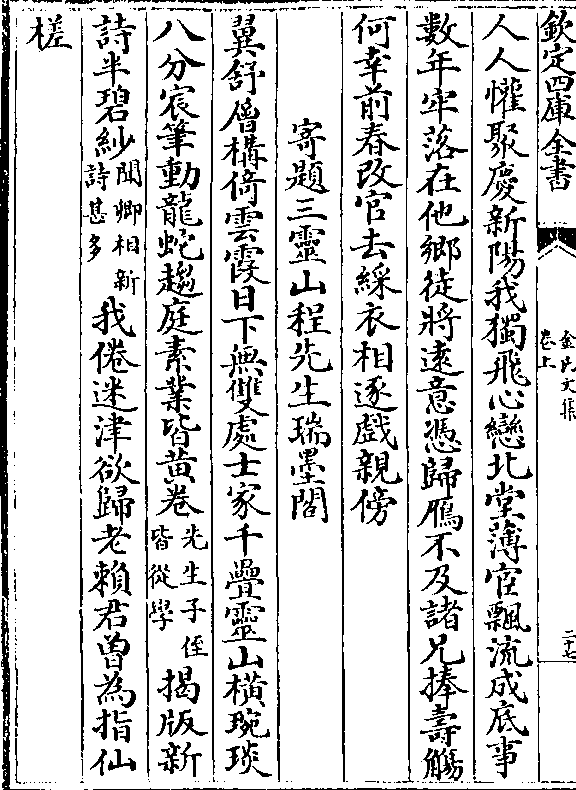 欽定四庫全書
金氏文集
卷上
二十七
人人懽聚慶新陽我獨飛心戀北堂薄宦飄流成底事
數年牢落在他鄉徒將遠意憑歸鴈不及諸兄捧壽觴
何幸前春改官去綵衣相逐戲親傍
寄題三靈山程先生瑞墨閣
翼舒層構倚雲霞日下無雙處士家千疊靈山橫琬琰
八分宸筆動龍蛇趨庭素業皆黃卷先生子侄皆從學揭版新
詩半碧紗聞卿相新詩甚多我倦迷津欲歸老賴君曽為指仙
槎